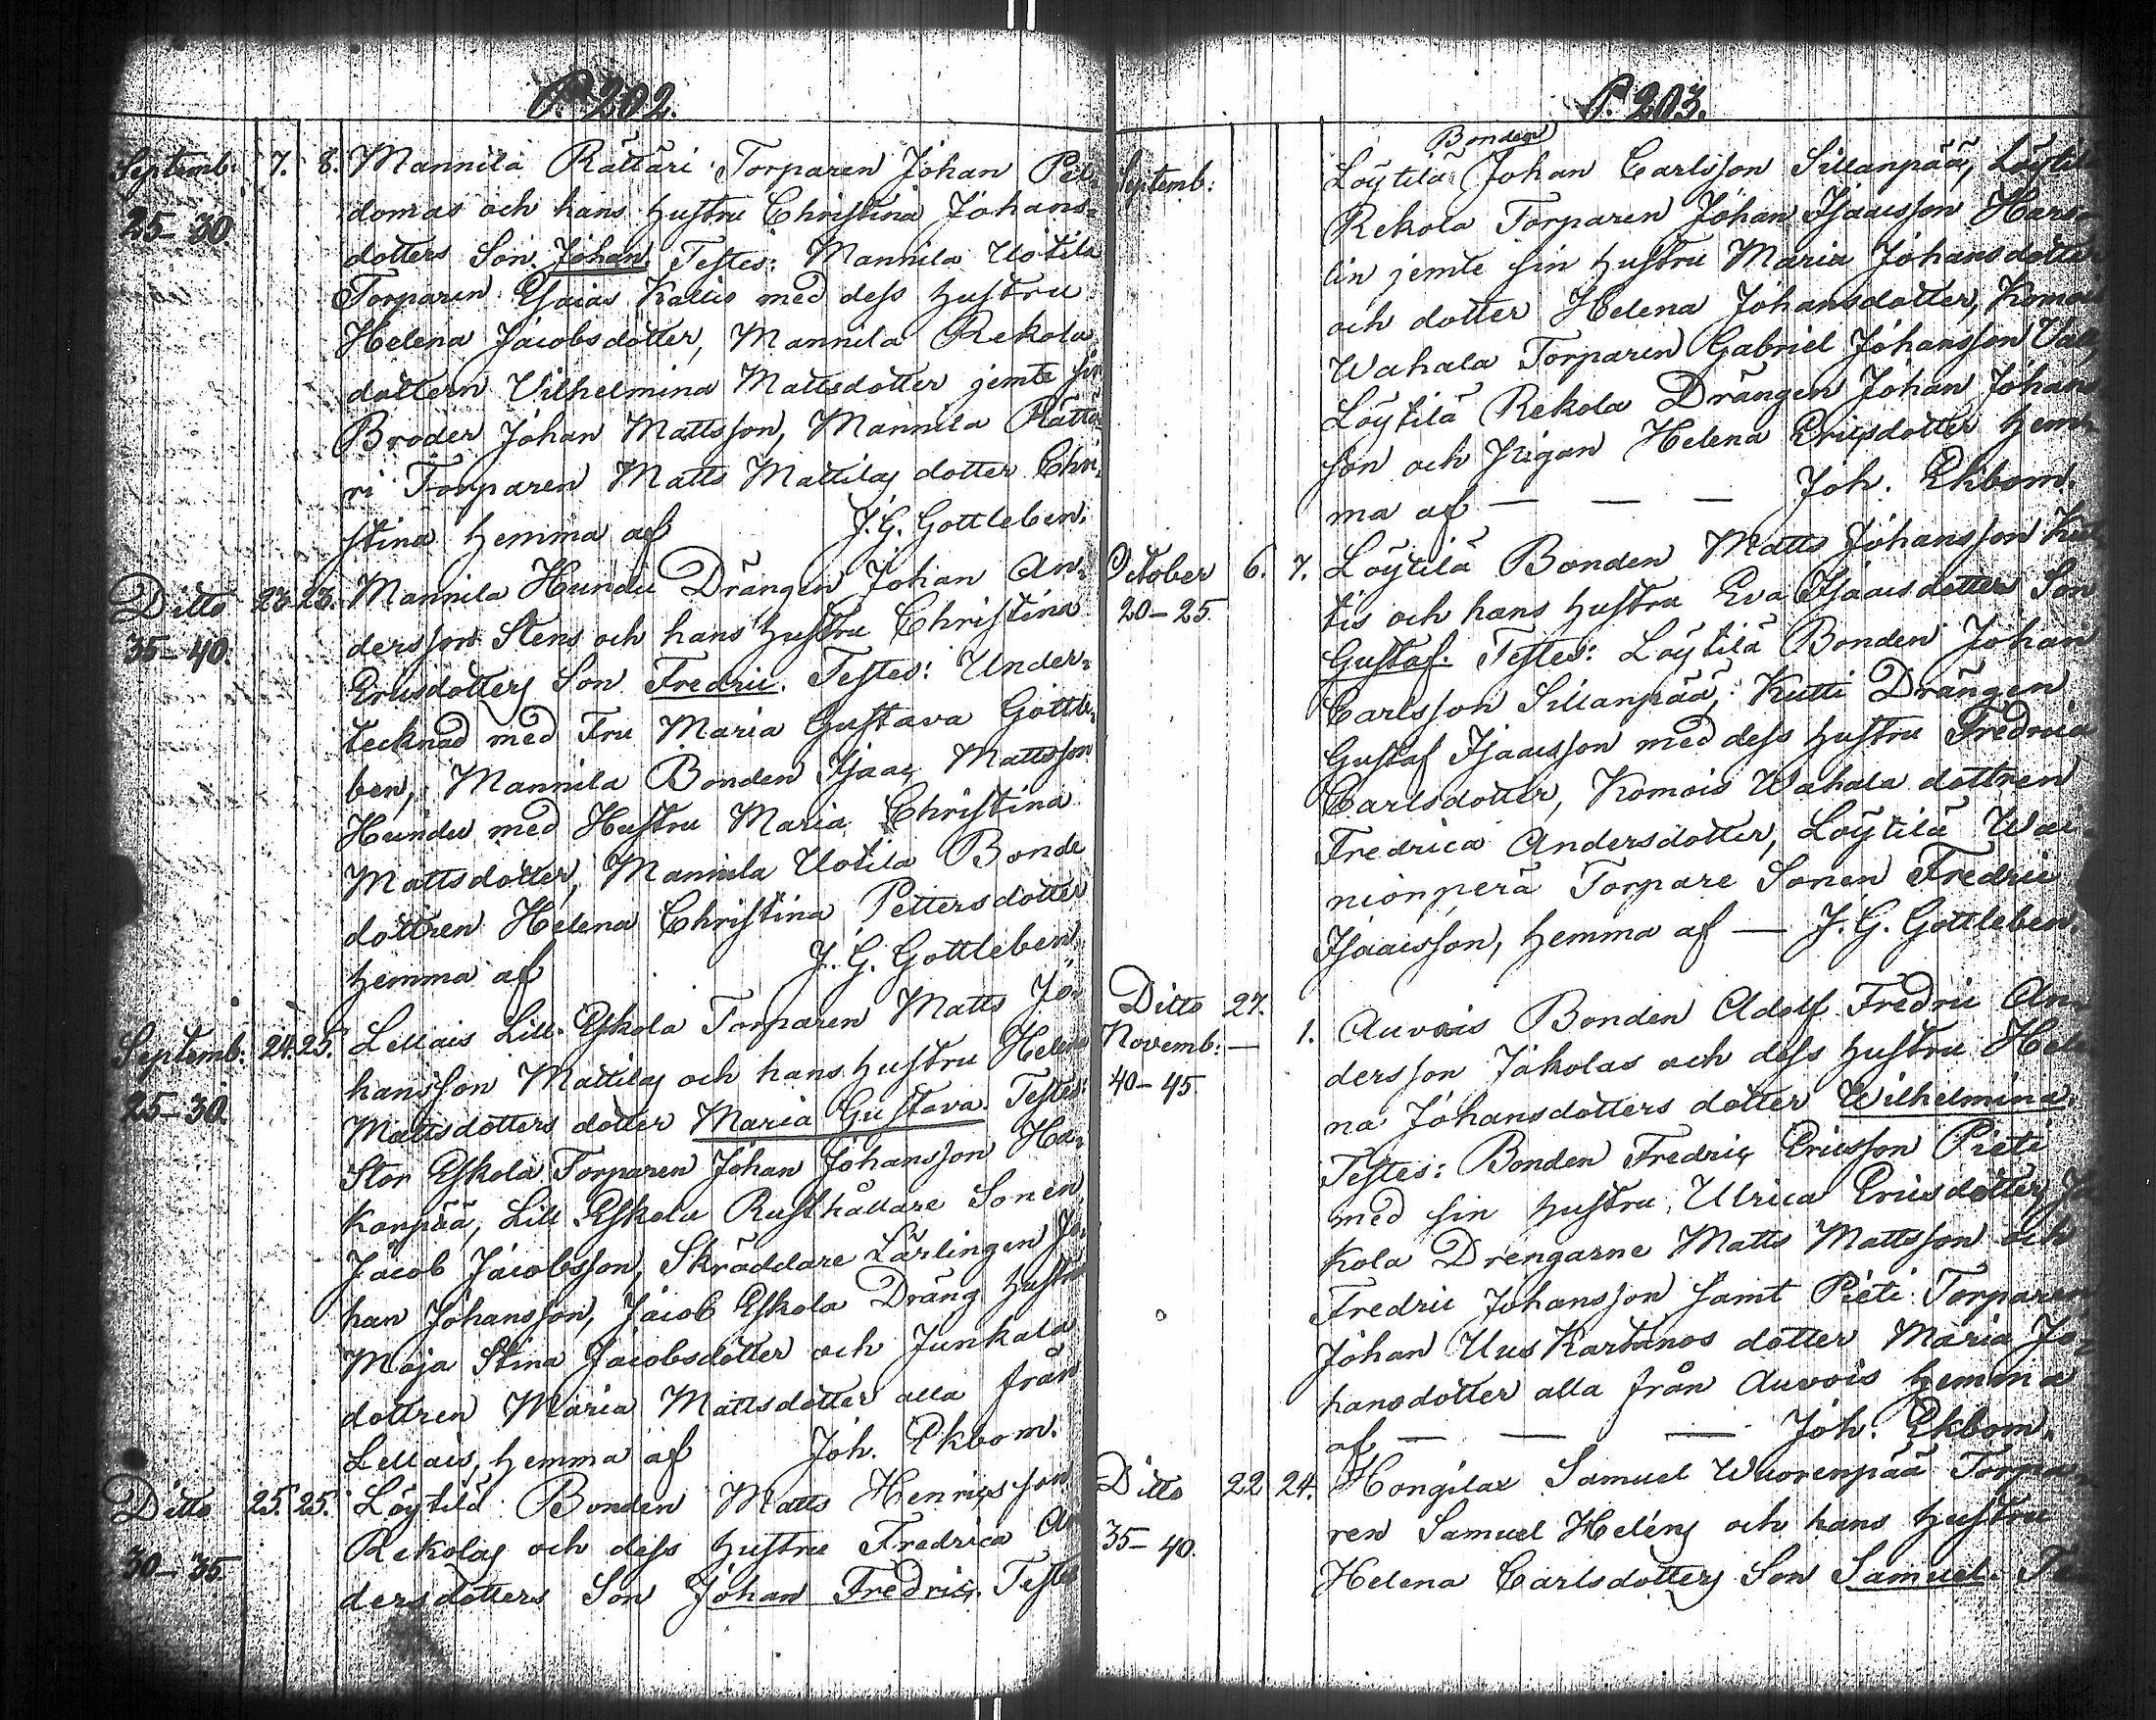 P. 202.
Septemb: 7. 8. Mannila Rättäri Torparen Johan Pel-
25-30 domas och hans hustru Christina Johans-
dotters Son Johan. Testes: Mannila Uotila
Torparen Esaias Kallis med dess hustru
Helena Jacobsdotter, Mannila Rekola
dottern Vilhelmina Mattsdotter jemte sin
Broder Johan Mattsson, Mannila Rättä-
ri Torparen Matts Mattilas dotter Chri-
stina hemma af J. G. Gottleben.
Ditto 23. 23. Mannila Hundu Drängen Johan An-
35-40. dersson Stens och hans hustru Christina
Ericsdotters Son Fredric. Testes: Under-
tecknad med Fru Maria Gustava Gottle-
ben, Mannila Bonden Isaac Mattsson
Hundu med Hustru Maria Christina
Mattsdotter, Mannila Uotila Bonde
dottren Helena Christina Pettersdotter
hemma af J. G. Gottleben
Septemb: 24. 25. Lellais Lill-Eskola Torparen Matts Jo-
25-30. hansson Mattilas och hans hustru Helena
Mattsdotters dotter Maria Gustava. Testes:
Stor Eskola Torparen Johan Johansson
Karpää, Lill-Eskola Rusthållare Sonen
Jacob Jacobsson, Skräddare Lärlingen Jo-
han Johansson, Jacob Eskola Dräng hustru
Maja Stina Jacobsdotter och Junkala
dottren Maria Mattsdotter alla från
Lellais, hemma af Joh. Ekbom.
Ditto 25. 25. Löytilä Bonden Matts Henricsson
30-35. Rekolas och dess hustru Fredrica An
dersdotters Son Johan Fredric. Testes
P. 203.
Bonden
Septemb: Löytilä Johan Carlsson Sillanpää, Löytilä
Rekola Torparen Johan Isaacsson Hars-
lin jemte sin hustru Maria Johansdotter
och dotter Helena Johansdotter, Komois
Wahala Torparen Gabriel Johansson
Löytilä Rekola Drängen Johan Johans
son och Pigan Helena Ericsdotter hem-
ma af — — — Joh. Ekbom.
October 6. 7. Löytilä Bonden Matts Johansson Kut
20-25. tis och hans hustru Eva Isaacsdotters Son
Gustaf. Testes: Löytilä Bonden Johan
Carlsson Sillanpää, Kutti Drängen
Gustaf Isaacsson med dess hustru Fredrica
Carlsdotter, Komois Wahala dottren
Fredrica Andersdotter, Löytilä Wai-
nionperä Torpare Sonen Fredric
Isaacsson, hemma af — J. G. Gottleben.
Ditto 27.
Novemb: — 1. Auvois Bonden Adolf Fredric An-
40-45. dersson Jakolas och dess hustru Hele
na Johansdotters dotter Wilhelmina.
Testes: Bonden Fredric Ericsson Pieti
med sin hustru Ulrica Ericsdotter, Ja
kola Drengarne Matts Mattsson och
Fredric Johansson samt Pieti Torparen
Johan Uus Kartanos dotter Maria Jo-
hansdotter alla från Auvois hemma
af — — — Joh. Ekbom.
Ditto 22 24. Hongila Samuel Wuorenpää Torpa-
35-40. ren Samuel Heléns och hans hustru
Helena Carlsdotters Son Samuel. Te